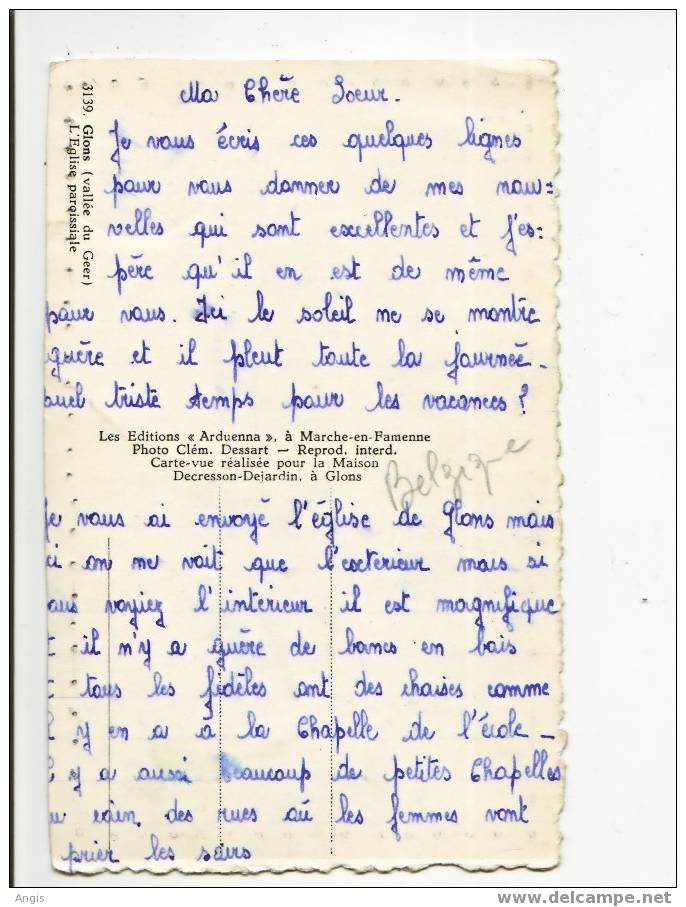 3139. Glons (vallée du Geer)
L'Eglise paroissiale
Ma Chère Soeur.
Je vous écris ces quelques lignes
pour vous donner de mes nou=
velles qui sont excellentes et j'es=
père qu'il en est de même
pour vous. Ici le soleil ne se montre
guère et il pleut toute la journeé.
quel triste temps pour les vacances?
Les Editions « Arduenna », à Marche-en-Famenne
Photo Clém. Dessart — Reprod. interd.
Carte-vue réalisée pour la Maison
Decresson-Dejardin, à Glons
Belgique
Je vous ai envoyé l'église de Glons mais
ici on ne voit que l'exterieur mais si
vous voyiez l'intérieur il est magnifique
et il n'y a guère de bancs en bois
et tous les fidèles ont des chaises comme
il y en a à la Chapelle de l'école_
il y a aussi beaucoup de petites Chapelles
au coin des rues où les femmes vont
prier les soirs
Angis
www.delcampe.net